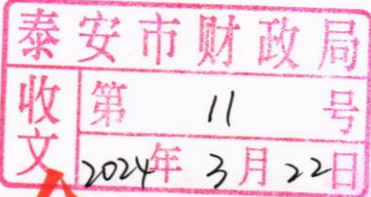 泰安市财政局
收文
第 11 号
2024年3月22日